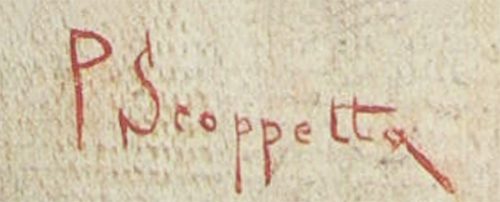 P Scoppetta